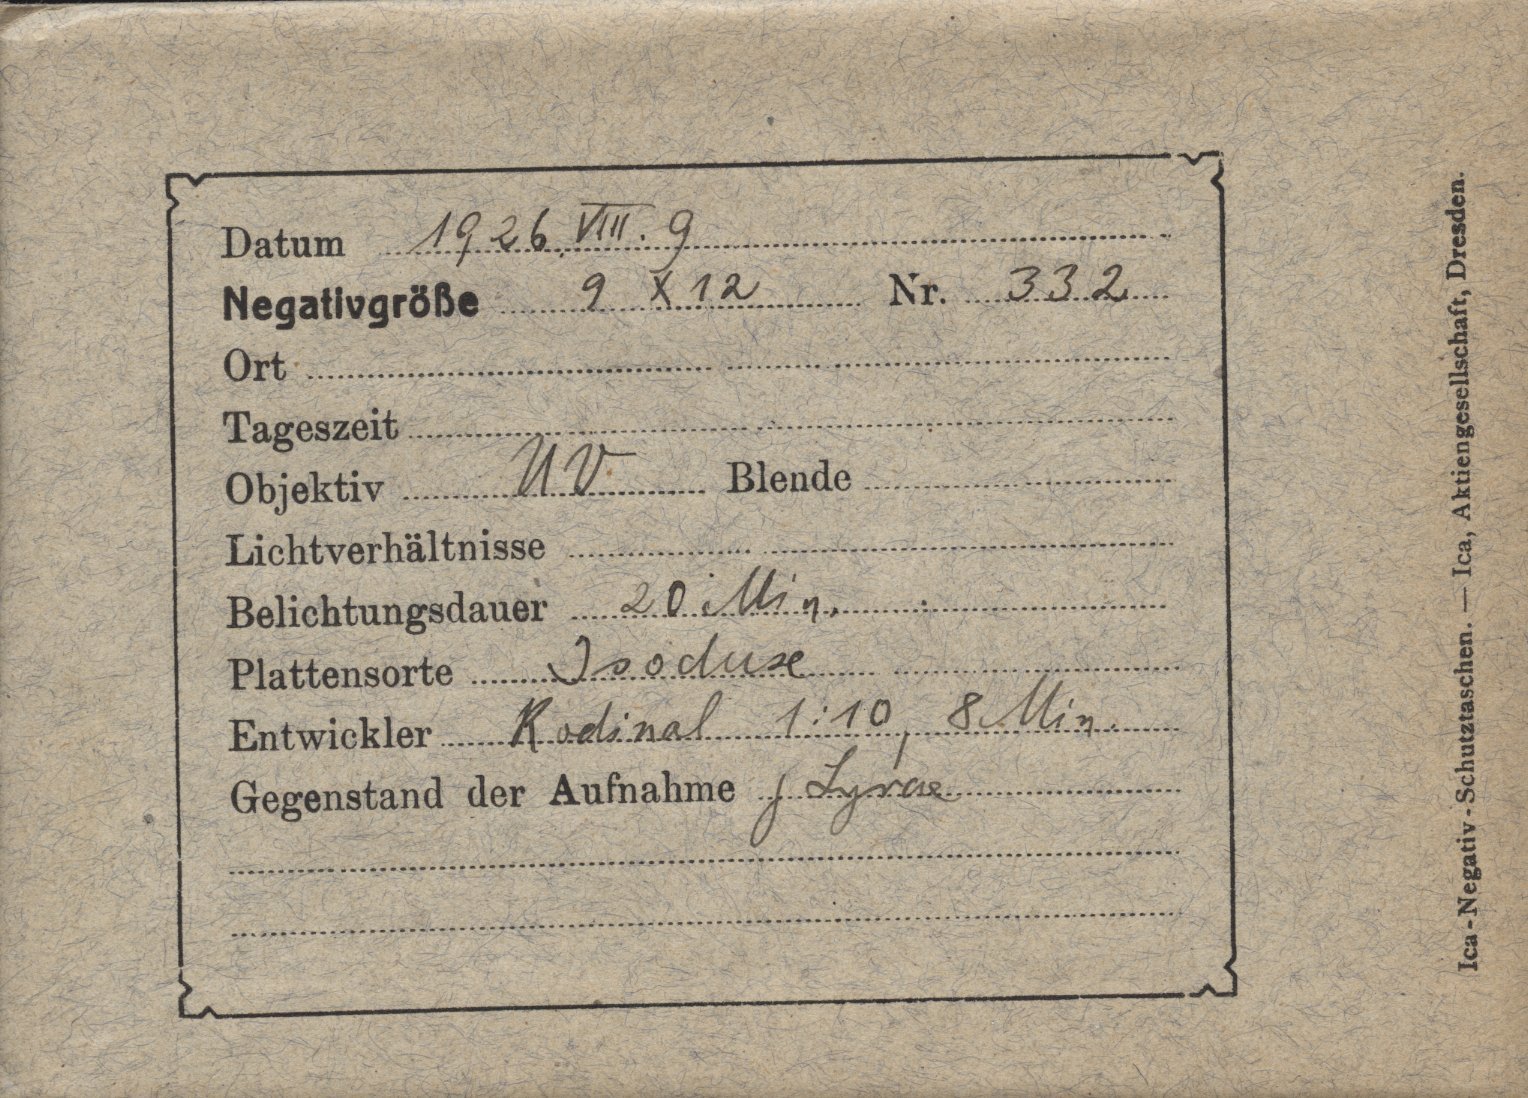 Datum 1926. VIII. 9
Negativgröße 9 X 12 Nr. 332
Ort
Tageszeit
Objektiv UV Blende
Lichtverhältnisse
Belichtungsdauer 20 Min.
Plattensorte Isoduxe
Entwickler Rodinal 1:10, 8 Min.
Gegenstand der Aufnahme Lyrae
Ica-Negativ-Schutztaschen. — Ica, Aktiengesellschaft, Dresden.